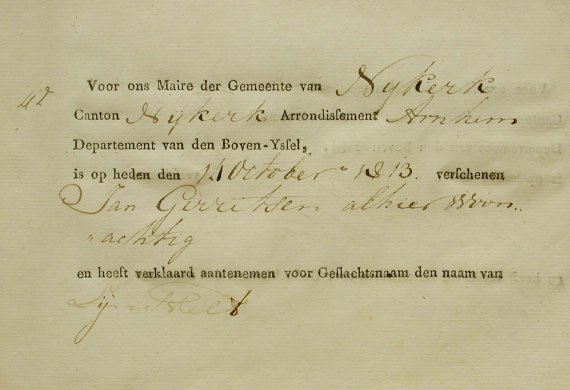 Voor ons Maire der Gemeente van Nykerk
Canton Nijkerk Arrondissement Arnhem
Departement van den Boven-Yssel,
is op heden den October 1813. verschenen
Jan Gerritsen alhier Woon
achtig
en heeft verklaard aantenemen voor Geslachtsnaam den naam van